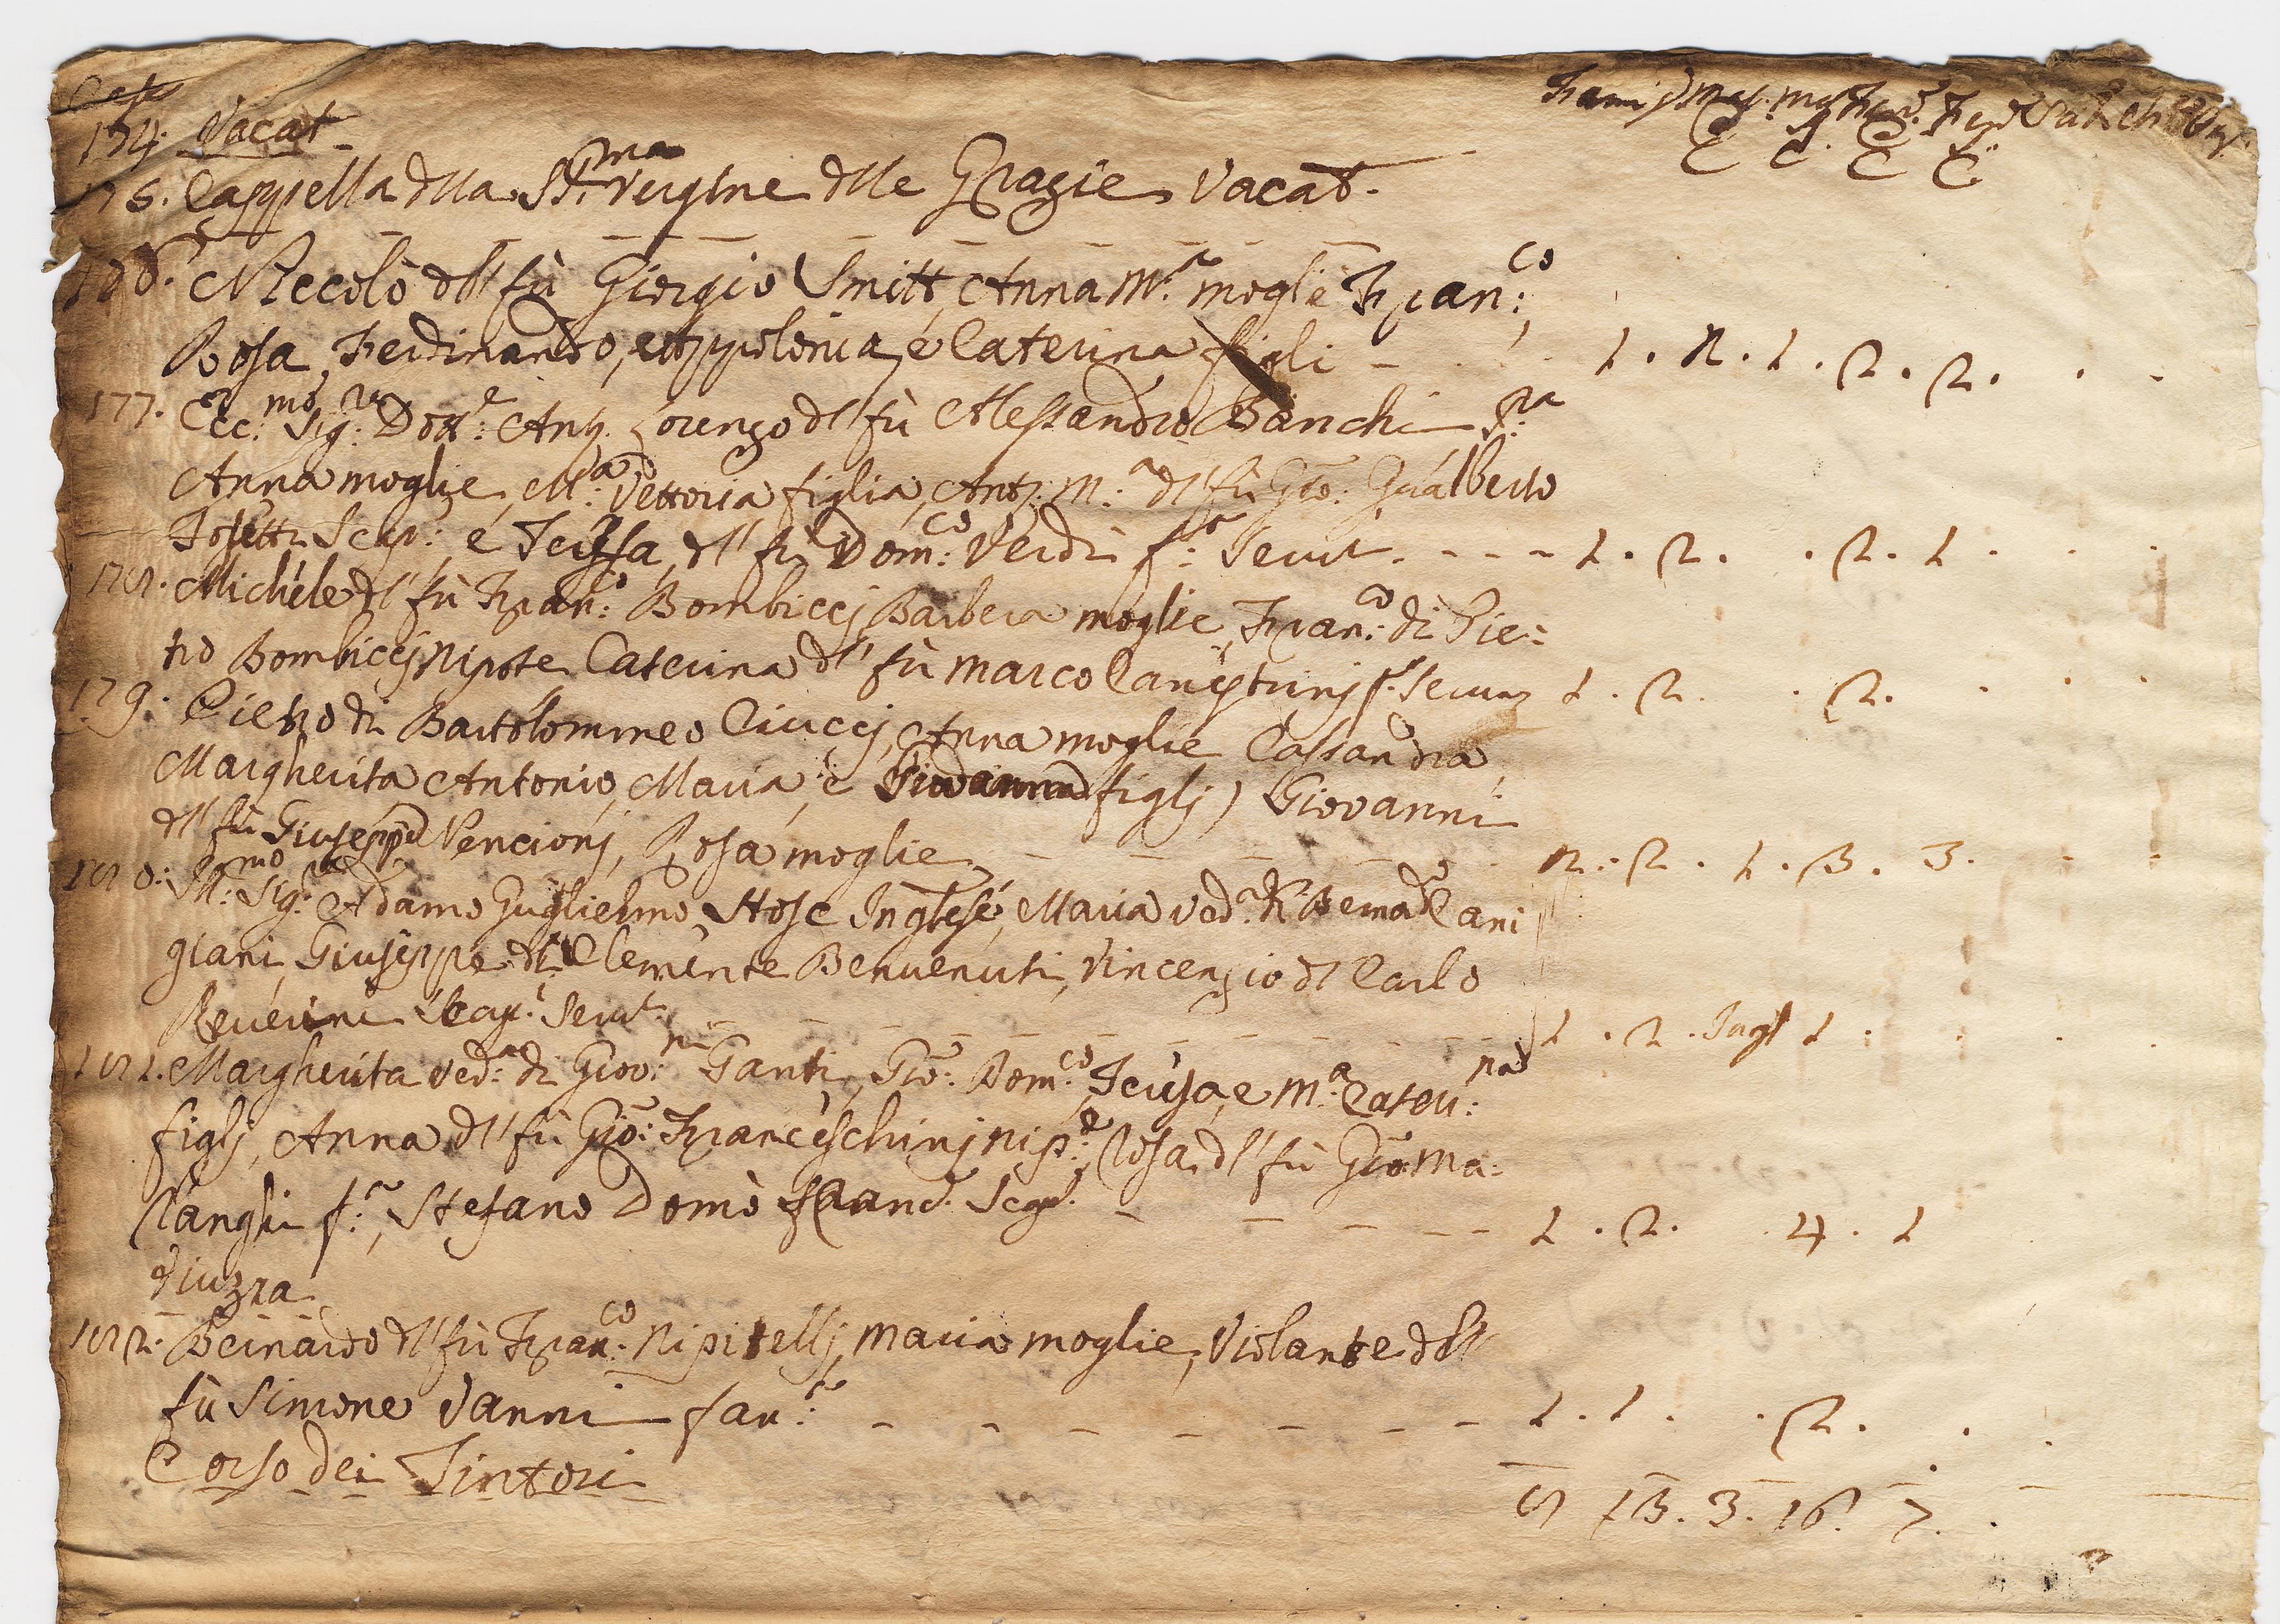 Case
174. Vacat
Famig. Mas. mas. Fem. Fem.
C C. C C.
175. Cappella d'lla S.S.ma Vergine d'lle Grazie Vacat.
176. Niccolò d'l fù Giorgio Smitt, Anna M.a moglie Fran:co
Rosa, Ferdinando, Appolonia, é Caterina figli - 1. 2. 1. 2. 2. . -
177. Ecc:mo Sig:re Dott:e Ant. Lorenzo d'l fù Alessandro Banchi S.ra
Anna moglie, M:a Vettoria figlia, Ant. M:a d'l fù Gio: Gualberto
Scap: é Teresa d'l fù Dom:co Verdi s:a Servt. - - - 1. 2. . 2. 1. . .
178. Michele d'l fù Fran:co Bombicej Barbera moglie, Fran:co di Pie:
tro Bombicej nipote Caterina d'l fù Marco s:a Serva 1. 2. . 2. . . .
179. Pietro di Bartolommeo Ciuccj, Anna moglie Cassandra,
Margherita Antonio, Maria, é Giovanna figlj) Giovanni
d'l fù Giuseppe Vencionj, Rosa moglie - - - - - 2. 2. 1. 3. 3. . -
180: Ill:mo Sig:re Adamo Guglielmo Inglese, Maria ved:a di Bernard:o Cani
giani, Giuseppe di Clemente Benvenuti, Vincenzio d'l Carlo
Reverini Scap:i Servt: - - - - - 1. 2. Ingl 1. . .
181. Margherita ved:a di Giov:ni Ganti, Gio: Dom:co, Teresa, e M:a Cater:na
figlj, Anna d'l fù Gio: Franceschinj nip:e, Rosa d'l fù Gio: Ma:
s:a, Stefano Domè Scap. - - - - - 1. 2. . 4. 1
182. Bernardo d'l fù Fran:co Nipitellj, Maria moglie, Violante d'l
fù Simone Vanni fan:a - - - - - - - 1. 1. . 2. . .
Corso dei Tintori
8 13. 3. 16. 7. .